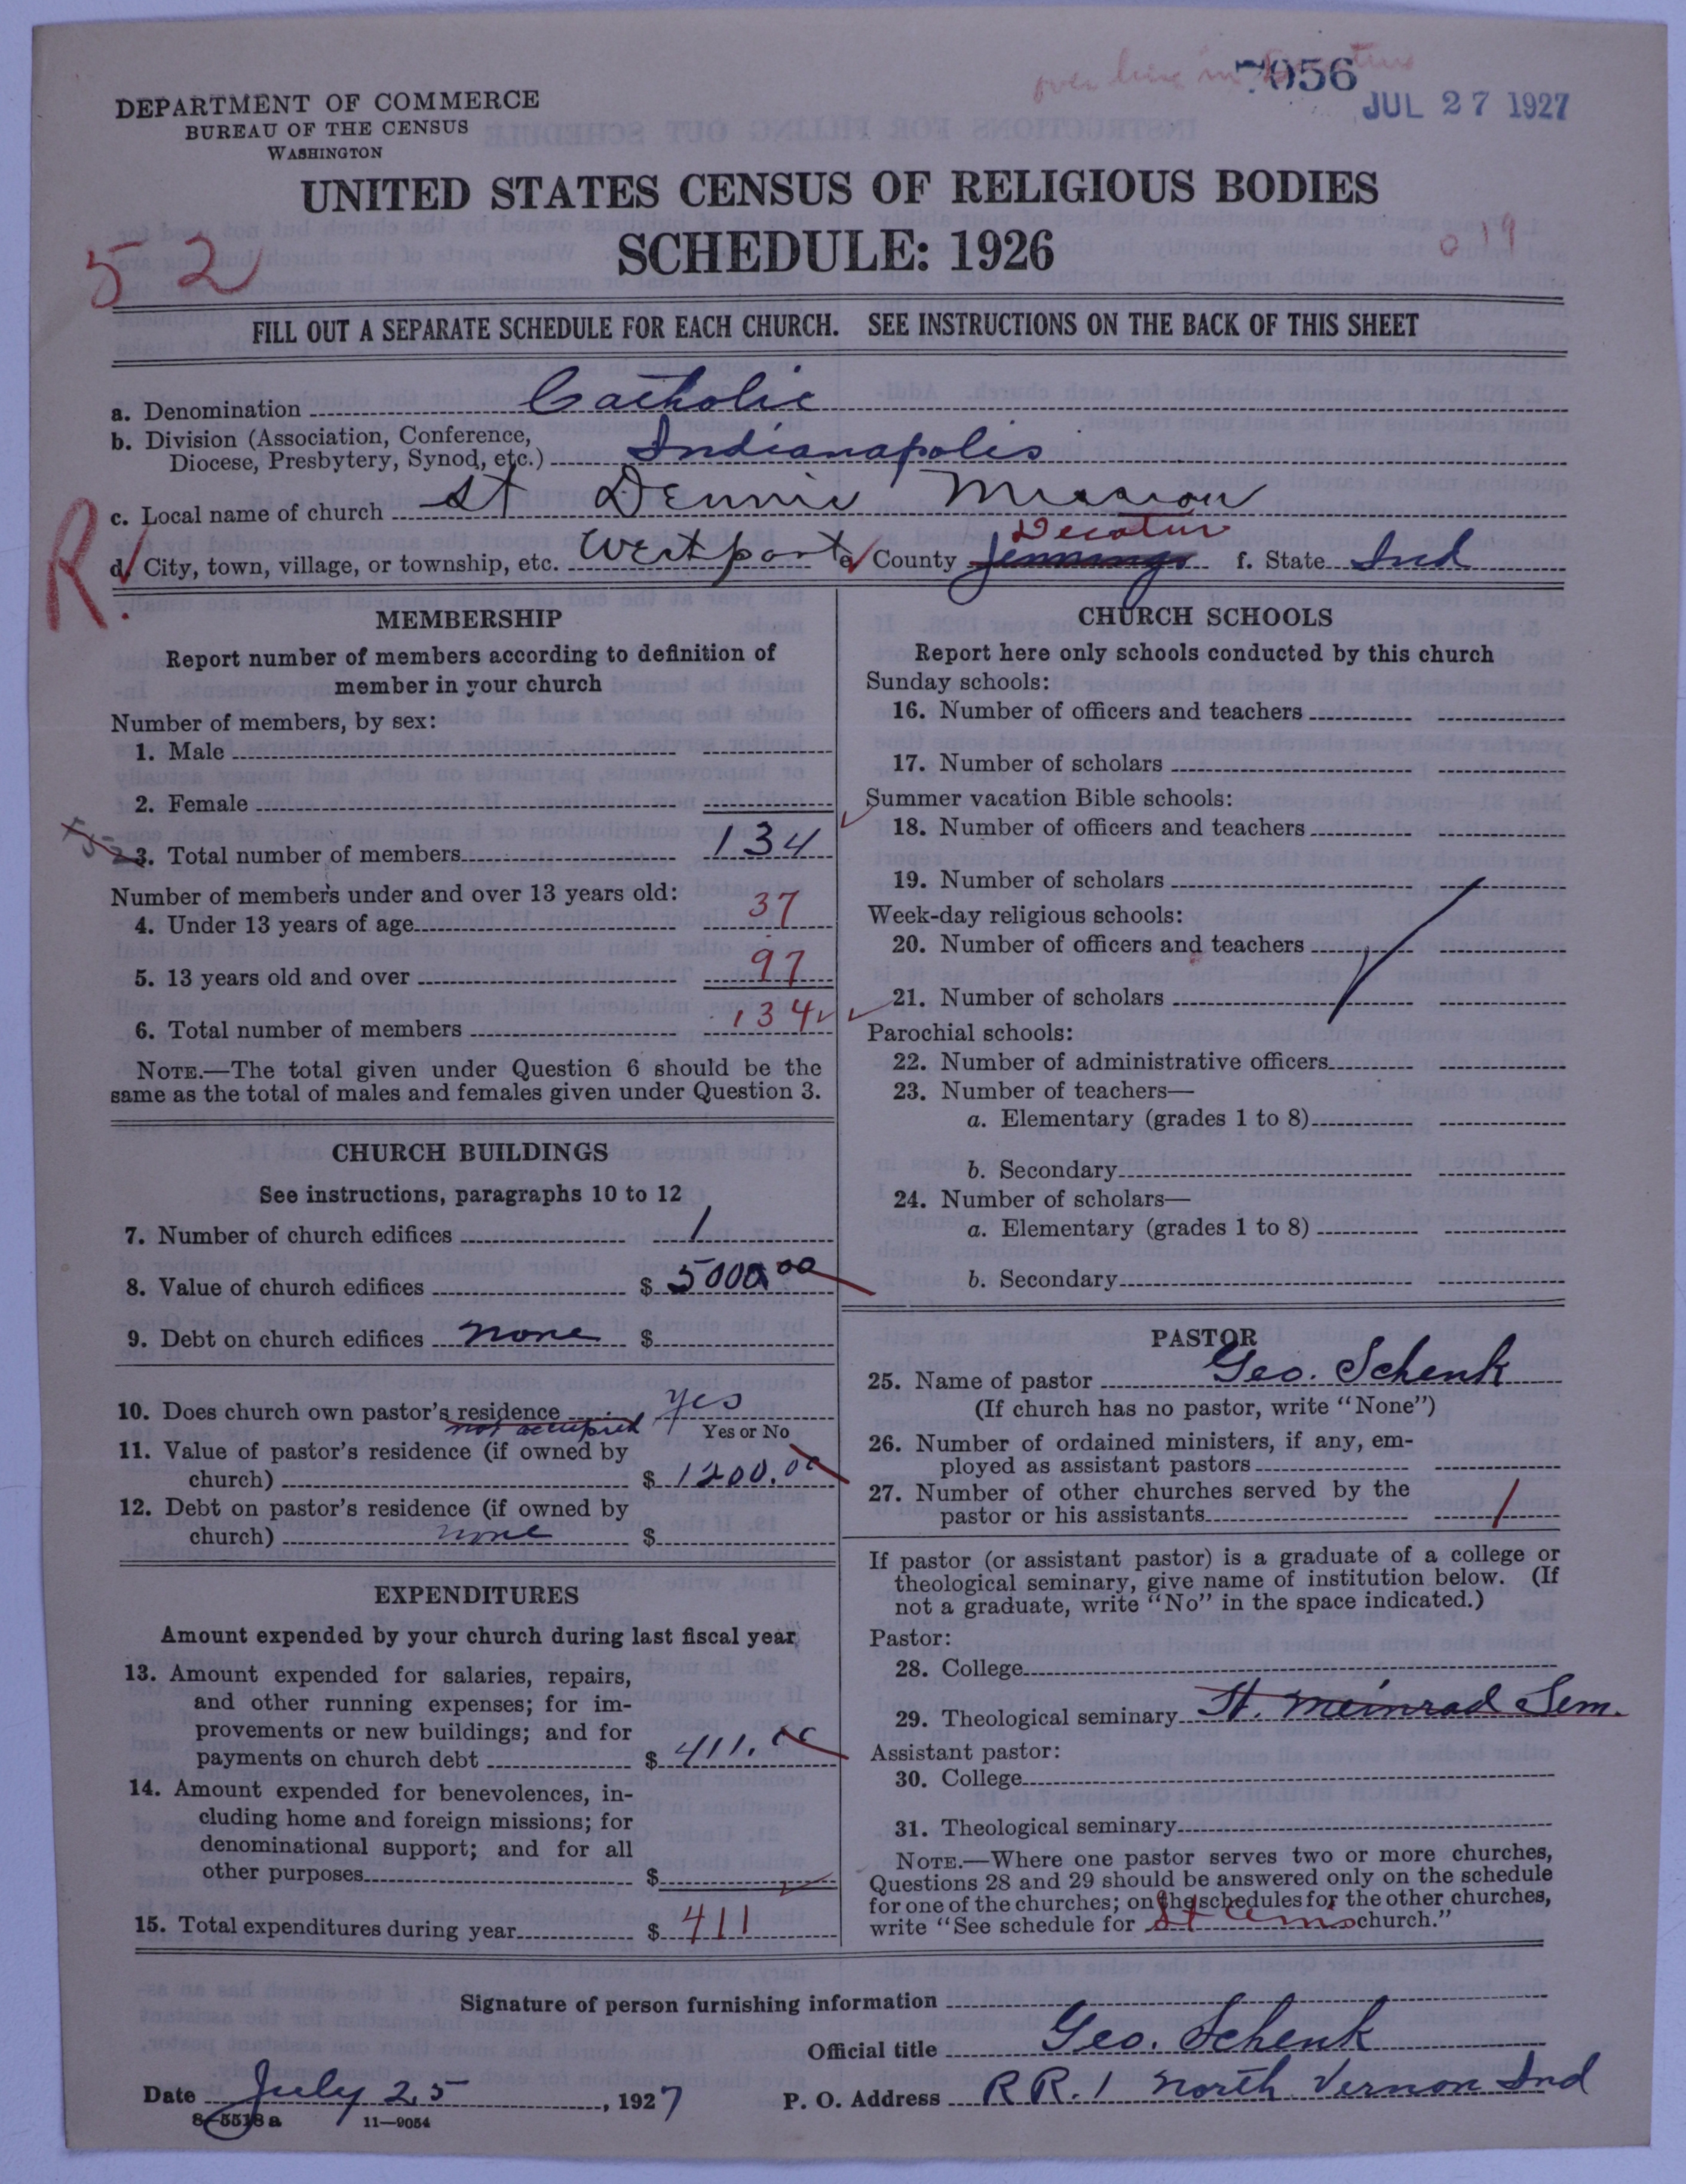 7956
JUL 27 1927
DEPARTMENT OF COMMERCE
BUREAU OF THE CENSUS
WASHINGTON
UNITED STATES CENSUS OF RELIGIOUS BODIES
SCHEDULE: 1926
52
019
FILL OUT A SEPARATE SCHEDULE FOR EACH CHURCH. SEE INSTRUCTIONS ON THE BACK OF THIS SHEET
a. Denomination Catholic
b. Division (Association, Conference,
Diocese, Presbytery, Synod, etc.) Indianapolis
c. Local name of church St Dennis Mission
R.
Decatur
d. City, town, village, or township, etc. Westport e. County Jennings f. State Ind
MEMBERSHIP
Report number of members according to definition of
member in your church
Number of members, by sex:
1. Male
2. Female
3. Total number of members 134
Number of members under and over 13 years old:
4. Under 13 years of age 37
5. 13 years old and over 97
6. Total number of members 134
NOTE.—The total given under Question 6 should be the
same as the total of males and females given under Question 3.
CHURCH BUILDINGS
See instructions, paragraphs 10 to 12
7. Number of church edifices 1
8. Value of church edifices $ 5000.00
9. Debt on church edifices none $
10. Does church own pastor's residence Yes
not occupied Yes or No
11. Value of pastor's residence (if owned by
church) $ 1200.00
12. Debt on pastor's residence (if owned by
church) none $
EXPENDITURES
Amount expended by your church during last fiscal year
13. Amount expended for salaries, repairs,
and other running expenses; for im-
provements or new buildings; and for
payments on church debt $ 411.00
14. Amount expended for benevolences, in-
cluding home and foreign missions; for
denominational support; and for all
other purposes $
15. Total expenditures during year $ 411
CHURCH SCHOOLS
Report here only schools conducted by this church
Sunday schools:
16. Number of officers and teachers
17. Number of scholars
Summer vacation Bible schools:
18. Number of officers and teachers
19. Number of scholars
Week-day religious schools:
20. Number of officers and teachers
21. Number of scholars
Parochial schools:
22. Number of administrative officers
23. Number of teachers—
a. Elementary (grades 1 to 8)
b. Secondary
24. Number of scholars—
a. Elementary (grades 1 to 8)
b. Secondary
PASTOR
25. Name of pastor Geo. Schenk
(If church has no pastor, write "None")
26. Number of ordained ministers, if any, em-
ployed as assistant pastors
27. Number of other churches served by the
pastor or his assistants 1
If pastor (or assistant pastor) is a graduate of a college or
theological seminary, give name of institution below. (If
not a graduate, write "No" in the space indicated.)
Pastor:
28. College
29. Theological seminary St. Meinrad Sem.
Assistant pastor:
30. College
31. Theological seminary
NOTE.—Where one pastor serves two or more churches,
Questions 28 and 29 should be answered only on the schedule
for one of the churches; on the schedules for the other churches,
write "See schedule for St Ann's church."
Signature of person furnishing information
Official title Geo. Schenk
Date July 25, 1927 P. O. Address R R. 1 North Vernon Ind
8-5518 a 11—9054